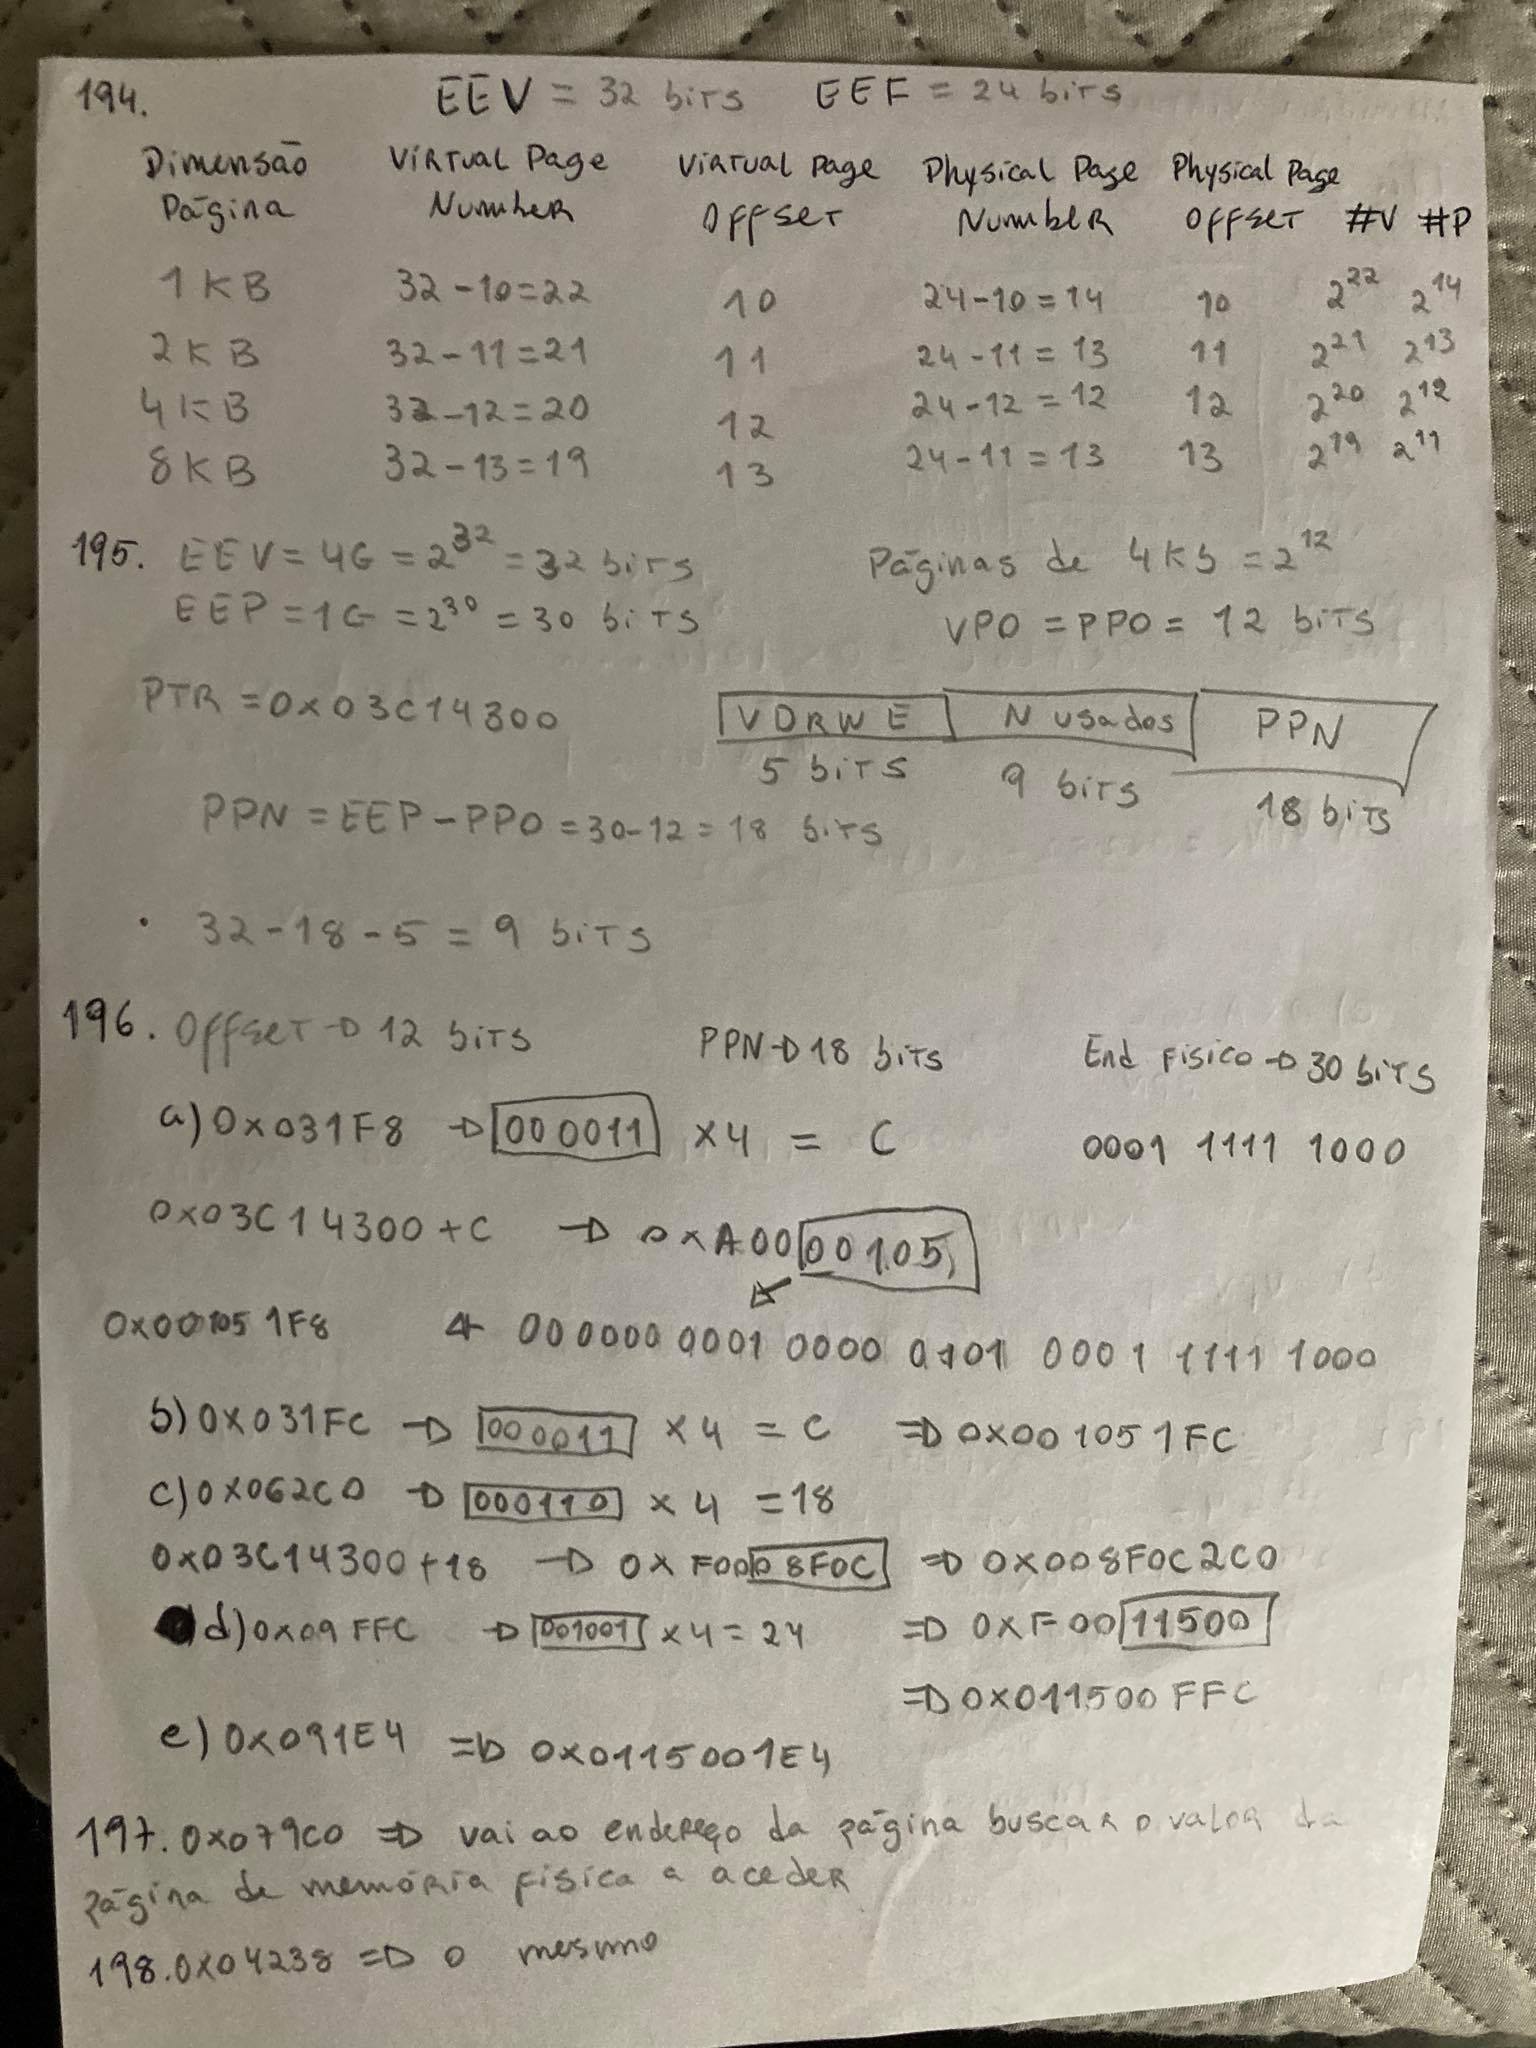 194. EEV = 32 bits EEF = 24 bits
Dimensão Página Virtual Page Number Virtual Page Offset Physical Page Number Physical Page Offset #V #P
1 KB 32-10=22 10 24-10=14 10 2^22 2^14
2 KB 32-11=21 11 24-11=13 11 2^21 2^13
4 KB 32-12=20 12 24-12=12 12 2^20 2^12
8 KB 32-13=19 13 24-11=13 13 2^19 2^11
195. EEV = 4G = 2^32 = 32 bits Páginas de 4Kb = 2^12
EEP = 1G = 2^30 = 30 bits VPO = PPO = 12 bits
PTR = 0x03C14300 VDRWE N usados PPN
5 bits 9 bits 18 bits
PPN = EEP - PPO = 30-12 = 18 bits
. 32-18-5 = 9 bits
196. Offset → 12 bits PPN → 18 bits End Fisico → 30 bits
a) 0x031F8 → 000011 x4 = C 0001 1111 1000
0x03C14300+C → 0xA0000105
0x001051F8 ← 000000 0001 0000 0101 0001 1111 1000
b) 0x031FC → 000011 x4 = C ⇒ 0x001051FC
c) 0x062C0 → 000110 x4 = 18
0x03C14300+18 → 0xF0008F0C ⇒ 0x008F0C2C0
d) 0x09FFC → 001001 x4 = 24 ⇒ 0xF0011500
⇒ 0x011500FFC
e) 0x091E4 ⇒ 0x0115001E4
197. 0x079C0 ⇒ vai ao endereço da página buscar o valor da
página de memória física a aceder
198. 0x04238 ⇒ o mesmo